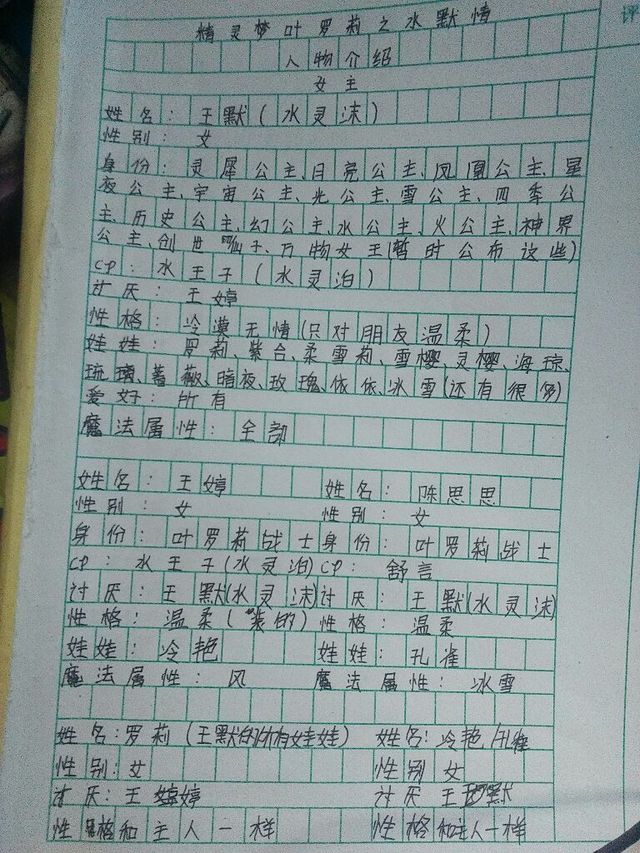 精灵梦叶罗莉之水默情
人物介绍
女主
姓名：王默（水灵沫）
性别：女
身份：灵犀公主、月亮公主、凤凰公主、星
夜公主、宇宙公主、光公主、雪公主、四季公
主、历史公主、幻公主、水公主、火公主、神界
公主、创世仙子、万物女王（暂时公布这些）
cp：水王子（水灵泊）
讨厌：王婷
性格：冷漠无情（只对朋友温柔）
娃娃：罗莉、紫台、柔雪莉、雪樱、灵樱、海琼、
琉璃、蔷薇、暗夜、玫瑰、依依、冰雪（还有很多）
爱好：所有
魔法属性：全部
姓名：王婷 姓名：陈思思
性别：女 性别：女
身份：叶罗莉战士 身份：叶罗莉战士
cp：水王子（水灵泊） cp：舒言
讨厌：王默（水灵沫） 讨厌：王默（水灵沫）
性格：温柔（装的） 性格：温柔
娃娃：冷艳 娃娃：孔雀
魔法属性：风 魔法属性：冰雪
姓名：罗莉（王默的所有娃娃） 姓名：冷艳/孔雀
性别：女 性别 女
讨厌：王婷 讨厌 王默
性格和主人一样 性格和主人一样
评